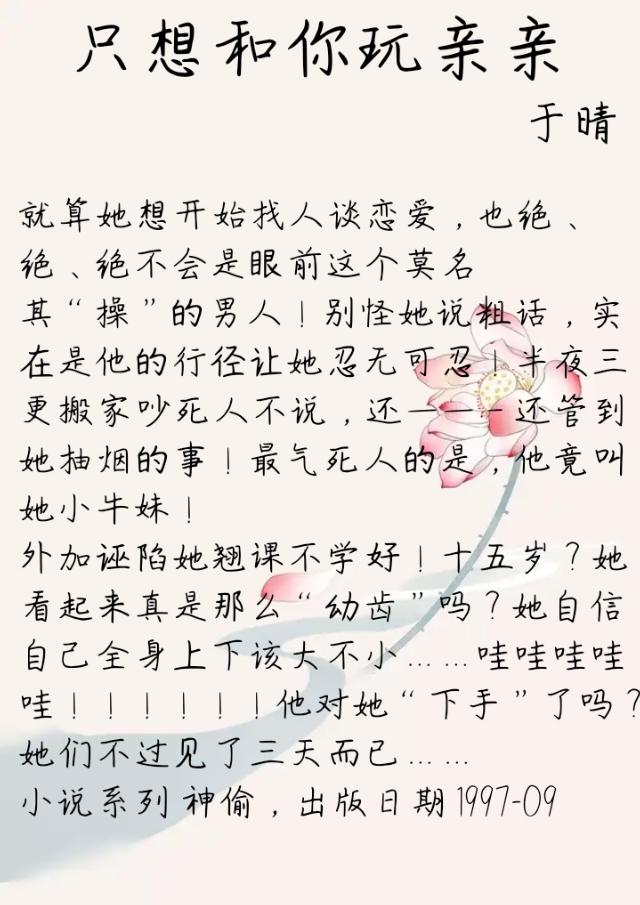 只想和你玩亲亲
于晴
就算她想开始找人谈恋爱，也绝、
绝、绝不会是眼前这个莫名
其“操”的男人！别怪她说粗话，实
在是他的行径让她忍无可忍！半夜三
更搬家吵死人不说，还———还管到
她抽烟的事！最气死人的是，他竟叫
她小牛妹！
外加诬陷她翘课不学好！十五岁？她
看起来真是那么“幼齿”吗？她自信
自己全身上下该大不小……哇哇哇哇
哇！！！！！！他对她“下手”了吗？
她们不过见了三天而已……
小说系列 神偷，出版日期 1997-09